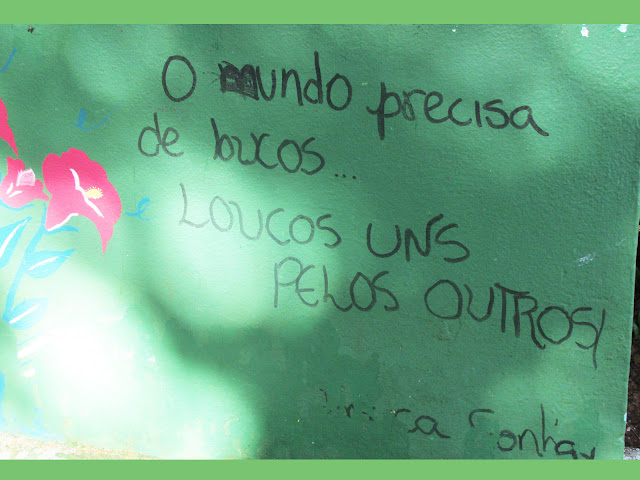 O mundo precisa
de loucos...
LOUCOS UNS
PELOS OUTROS!